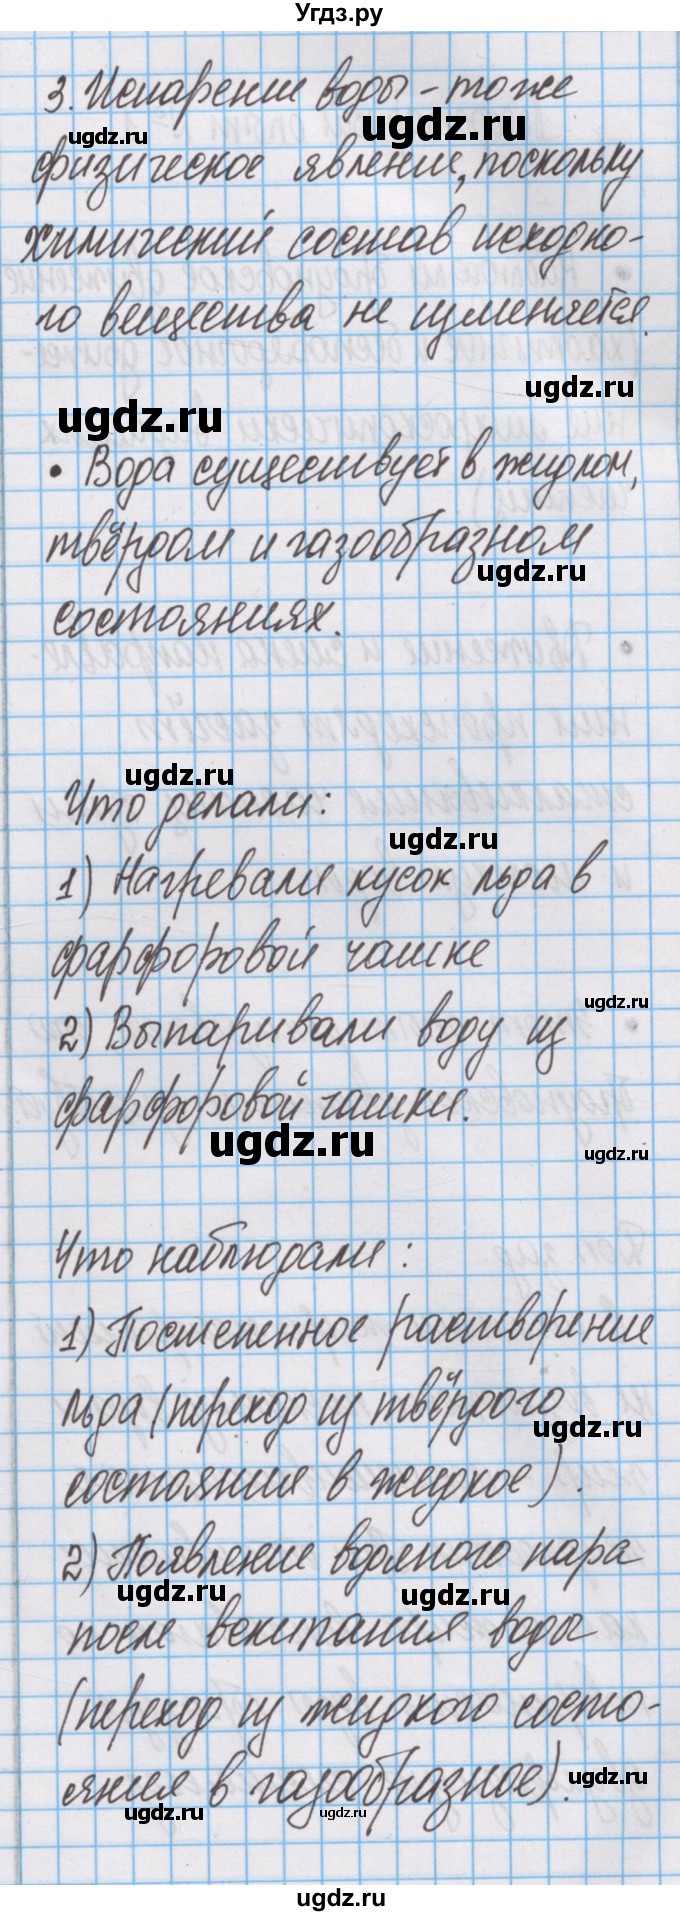 Угдз.ру
3. Испарение воды - тоже
ugdz.ru
ugdz.ru
физическое явление, поскольку
химический состав исходно-
го вещества не изменяется.
ugdz.ru
ugdz.ru
• Вода существует в жидком,
твёрдом и газообразном
ugdz.ru
состояниях.
ugdz.ru
Что делали:
ugdz.ru
1) Нагревали кусок льда в
фарфоровой чашке
ugdz.ru
2) Выпаривали воду из
фарфоровой чашки.
ugdz.ru
ugdz.ru
Что наблюдали:
1) Постепенное растворение
льда (переход из твёрдого
ugdz.ru
состояния в жидкое).
2) Появление водяного пара
ugdz.ru
ugdz.ru
после вскипания воды
(переход из жидкого состо-
ugdz.ru
яния в газообразное).
ugdz.ru
ugdz.ru
ugdz.ru